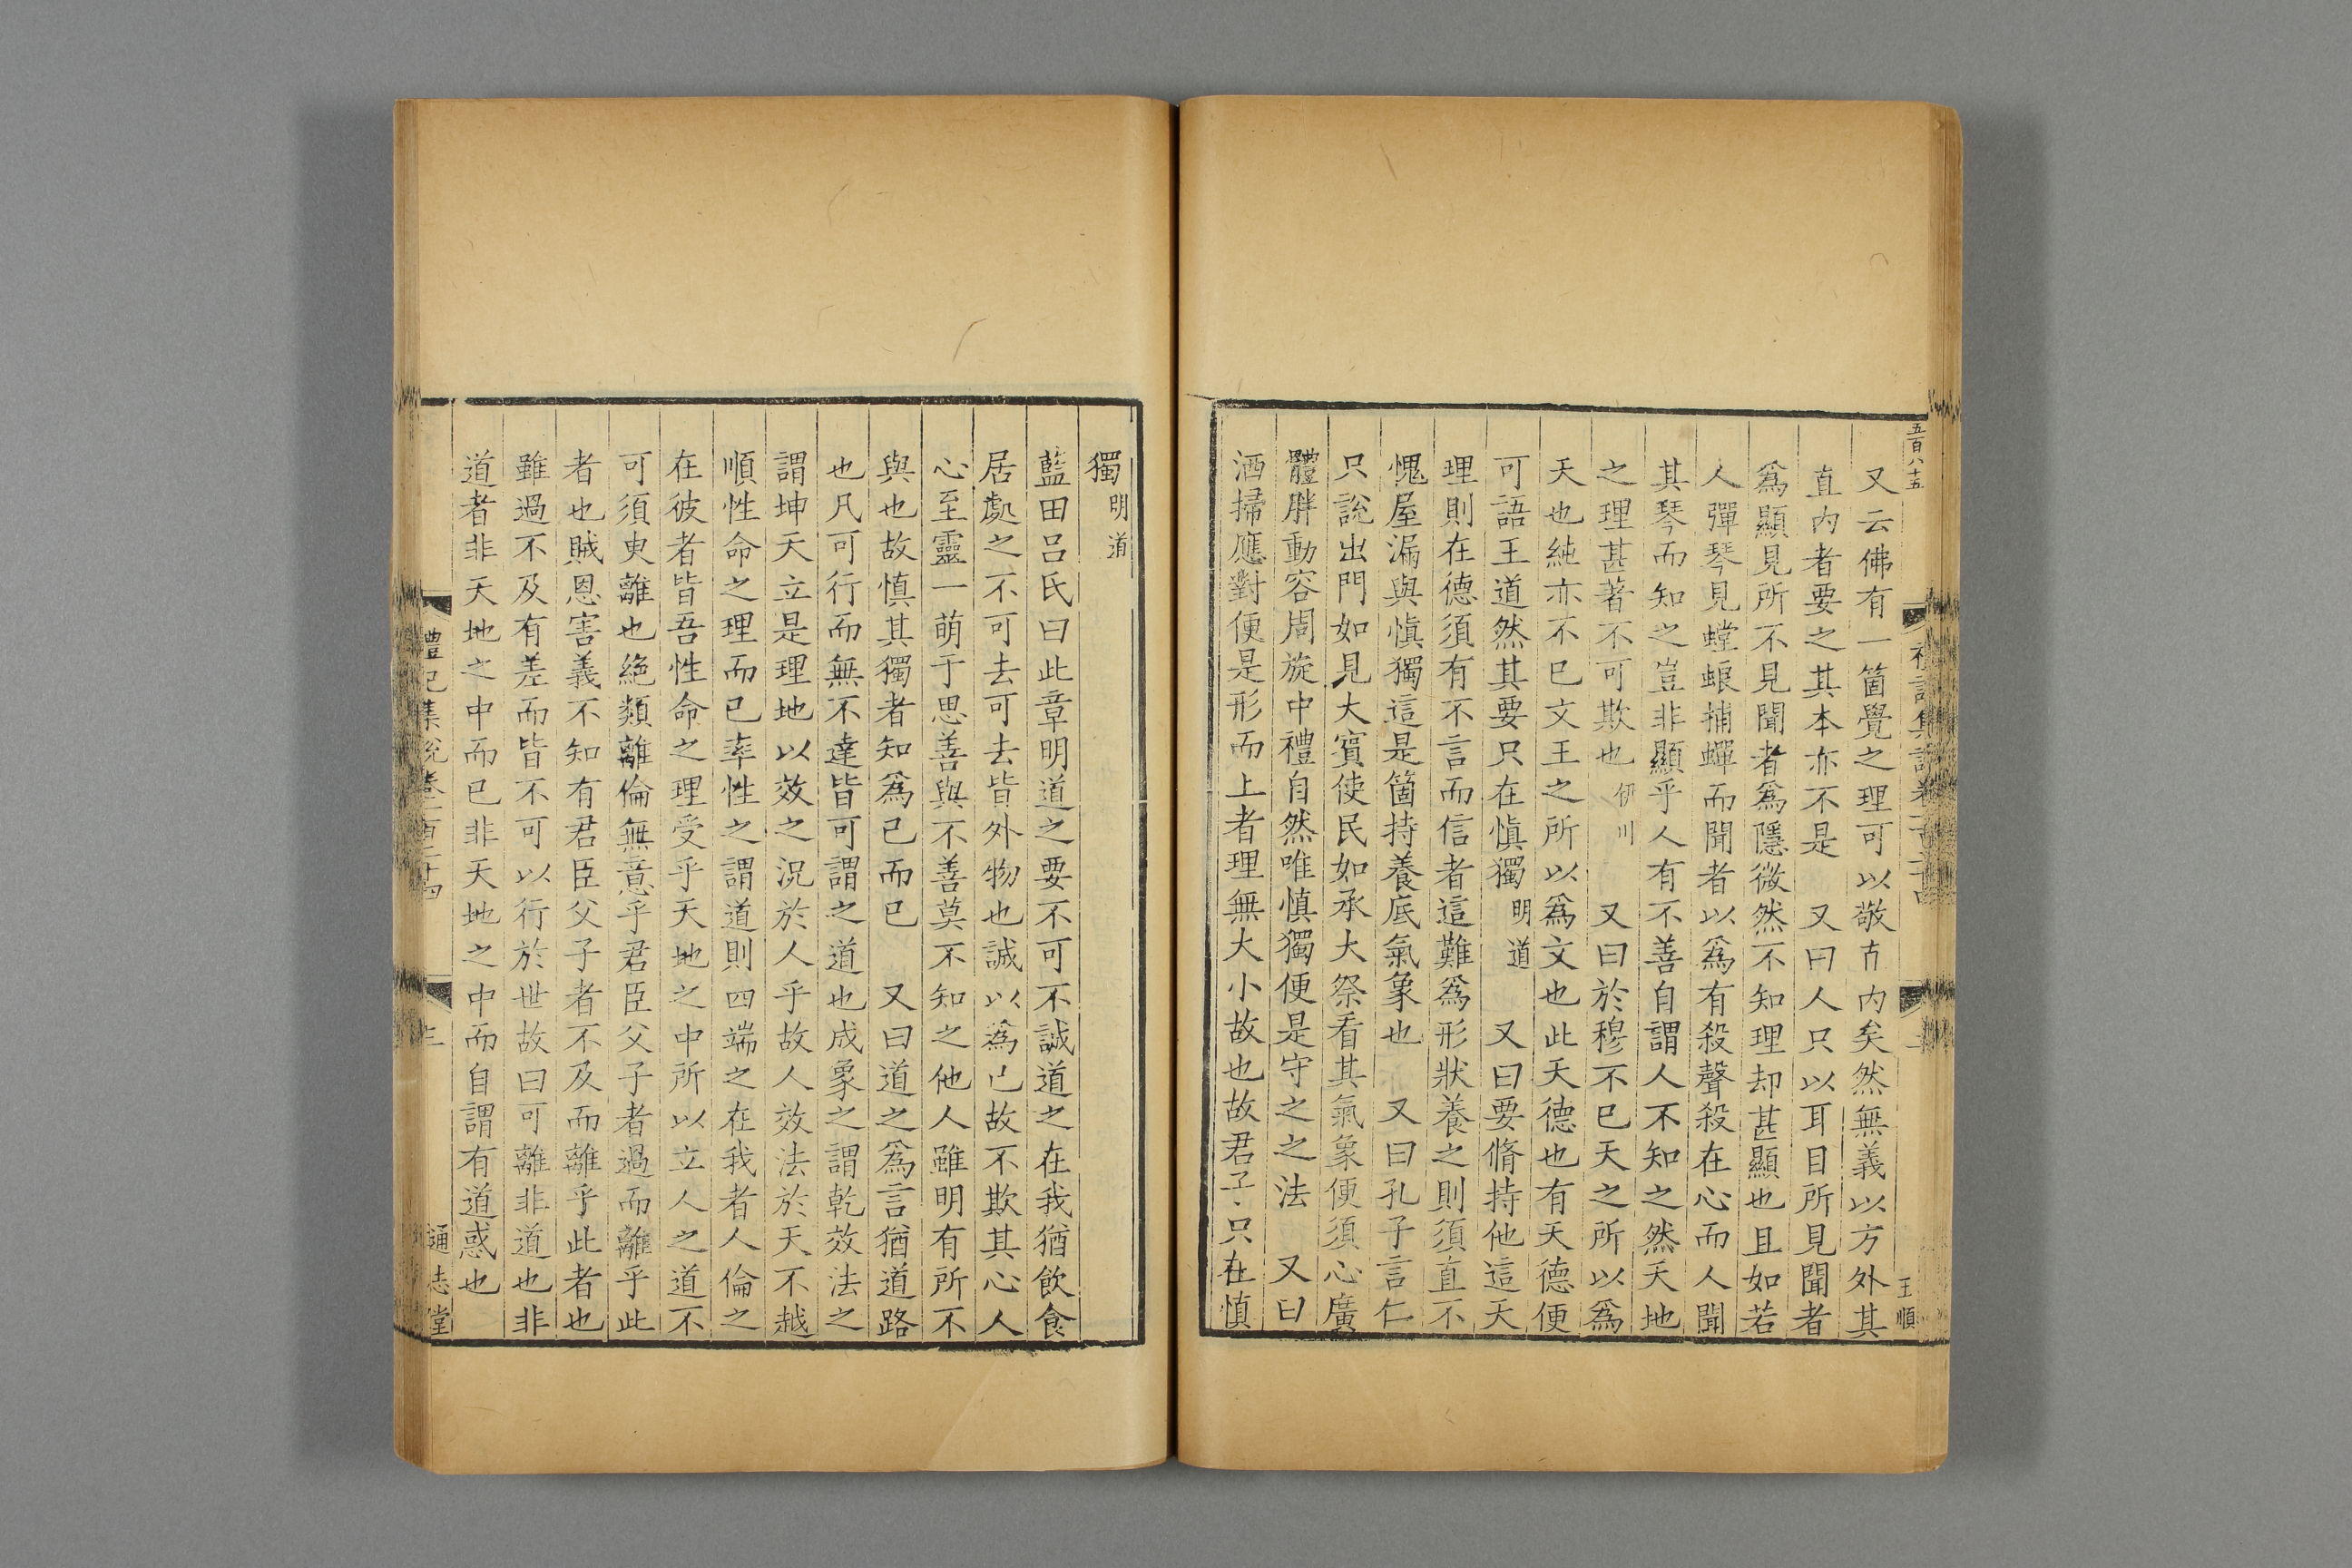 五百八十五
王順
又云佛有一箇覺之理可以敬直內矣然無義以方外其
直內者要之其本亦不是 又曰人只以耳目所見聞者
爲顯見所不見聞者爲隱微然不知理却甚顯也且如若
人彈琴見螳蜋捕蟬而聞者以爲有殺聲殺在心而人聞
其琴而知之豈非顯乎人有不善自謂人不知之然天地
之理甚著不可欺也伊川 又曰於穆不已天之所以爲
天也純亦不已文王之所以爲文也此天德也有天德便
可語王道然其要只在慎獨明道 又曰要脩持他這天
理則在德須有不言而信者這難爲形狀養之則須直不
愧屋漏與慎獨這是箇持養底氣象也 又曰孔子言仁
只說出門如見大賓使民如承大祭看其氣象便須心廣
體胖動容周旋中禮自然唯慎獨便是守之之法 又曰
洒掃應對便是形而上者理無大小故也故君子只在慎
獨明道
藍田呂氏曰此章明道之要不可不誠道之在我猶飲食
居處之不可去可去皆外物也誠以爲已故不欺其心人
心至靈一萌于思善與不善莫不知之他人雖明有所不
與也故慎其獨者知爲已而已 又曰道之爲言猶道路
也凡可行而無不達皆可謂之道也成象之謂乾效法之
謂坤天立是理地以效之況於人乎故人效法於天不越
順性命之理而已率性之謂道則四端之在我者人倫之
在彼者皆吾性命之理受乎天地之中所以立人之道不
可須臾離也絕類離倫無意乎君臣父子者過而離乎此
者也賊恩害義不知有君臣父子者不及而離乎此者也
雖過不及有差而皆不可以行於世故曰可離非道也非
道者非天地之中而已非天地之中而自謂有道惑也
禮記集說卷一百二十四
通志堂